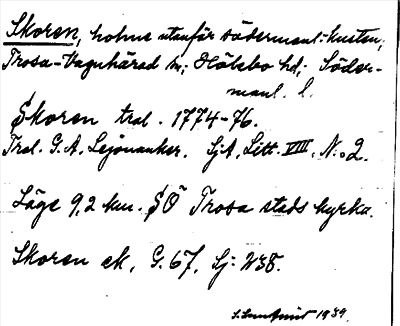 Skoren, holme utanför södermanl.-kusten,
Trosa-Vagnhärad sn; Hölebo hd; Söder-
manl. l.
Skoren tral. 1774-76.
Tral. G. A. Lejonanker. SjA, Litt. VIII, N:o 2.
Läge 9,2 km. SÖ Trosa stads kyrka.
Skoren ek, G. 67, Sj: V38.
1939